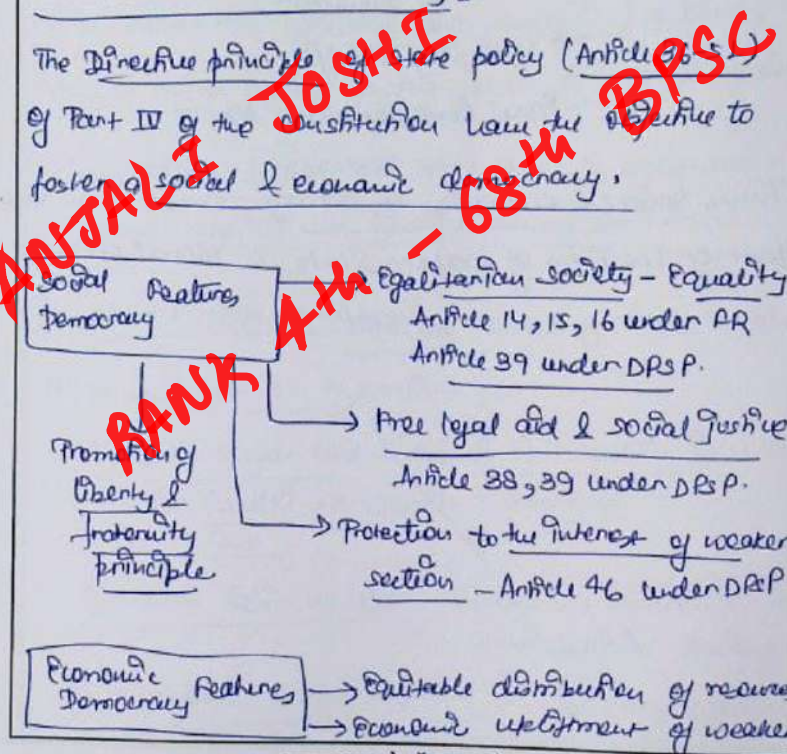 The Directive principle of state policy (Article 36-51)
of Part IV of the constitution have the objective to
foster a social & economic democracy.
ANJALI JOSHI
RANK 4th - 68th BPSC
Social Features
Democracy
→ Egalitarian society - Equality
Article 14, 15, 16 under FR
Article 39 under DPSP.
→ Free legal aid & social justice
Article 38, 39 under DPSP.
→ Protection to the interest of weaker
section - Article 46 under DPSP
Promotion of
liberty &
fraternity
principle
Economic
Democracy Features
→ Equitable distribution of resour
→ Economic upliftment of weaker